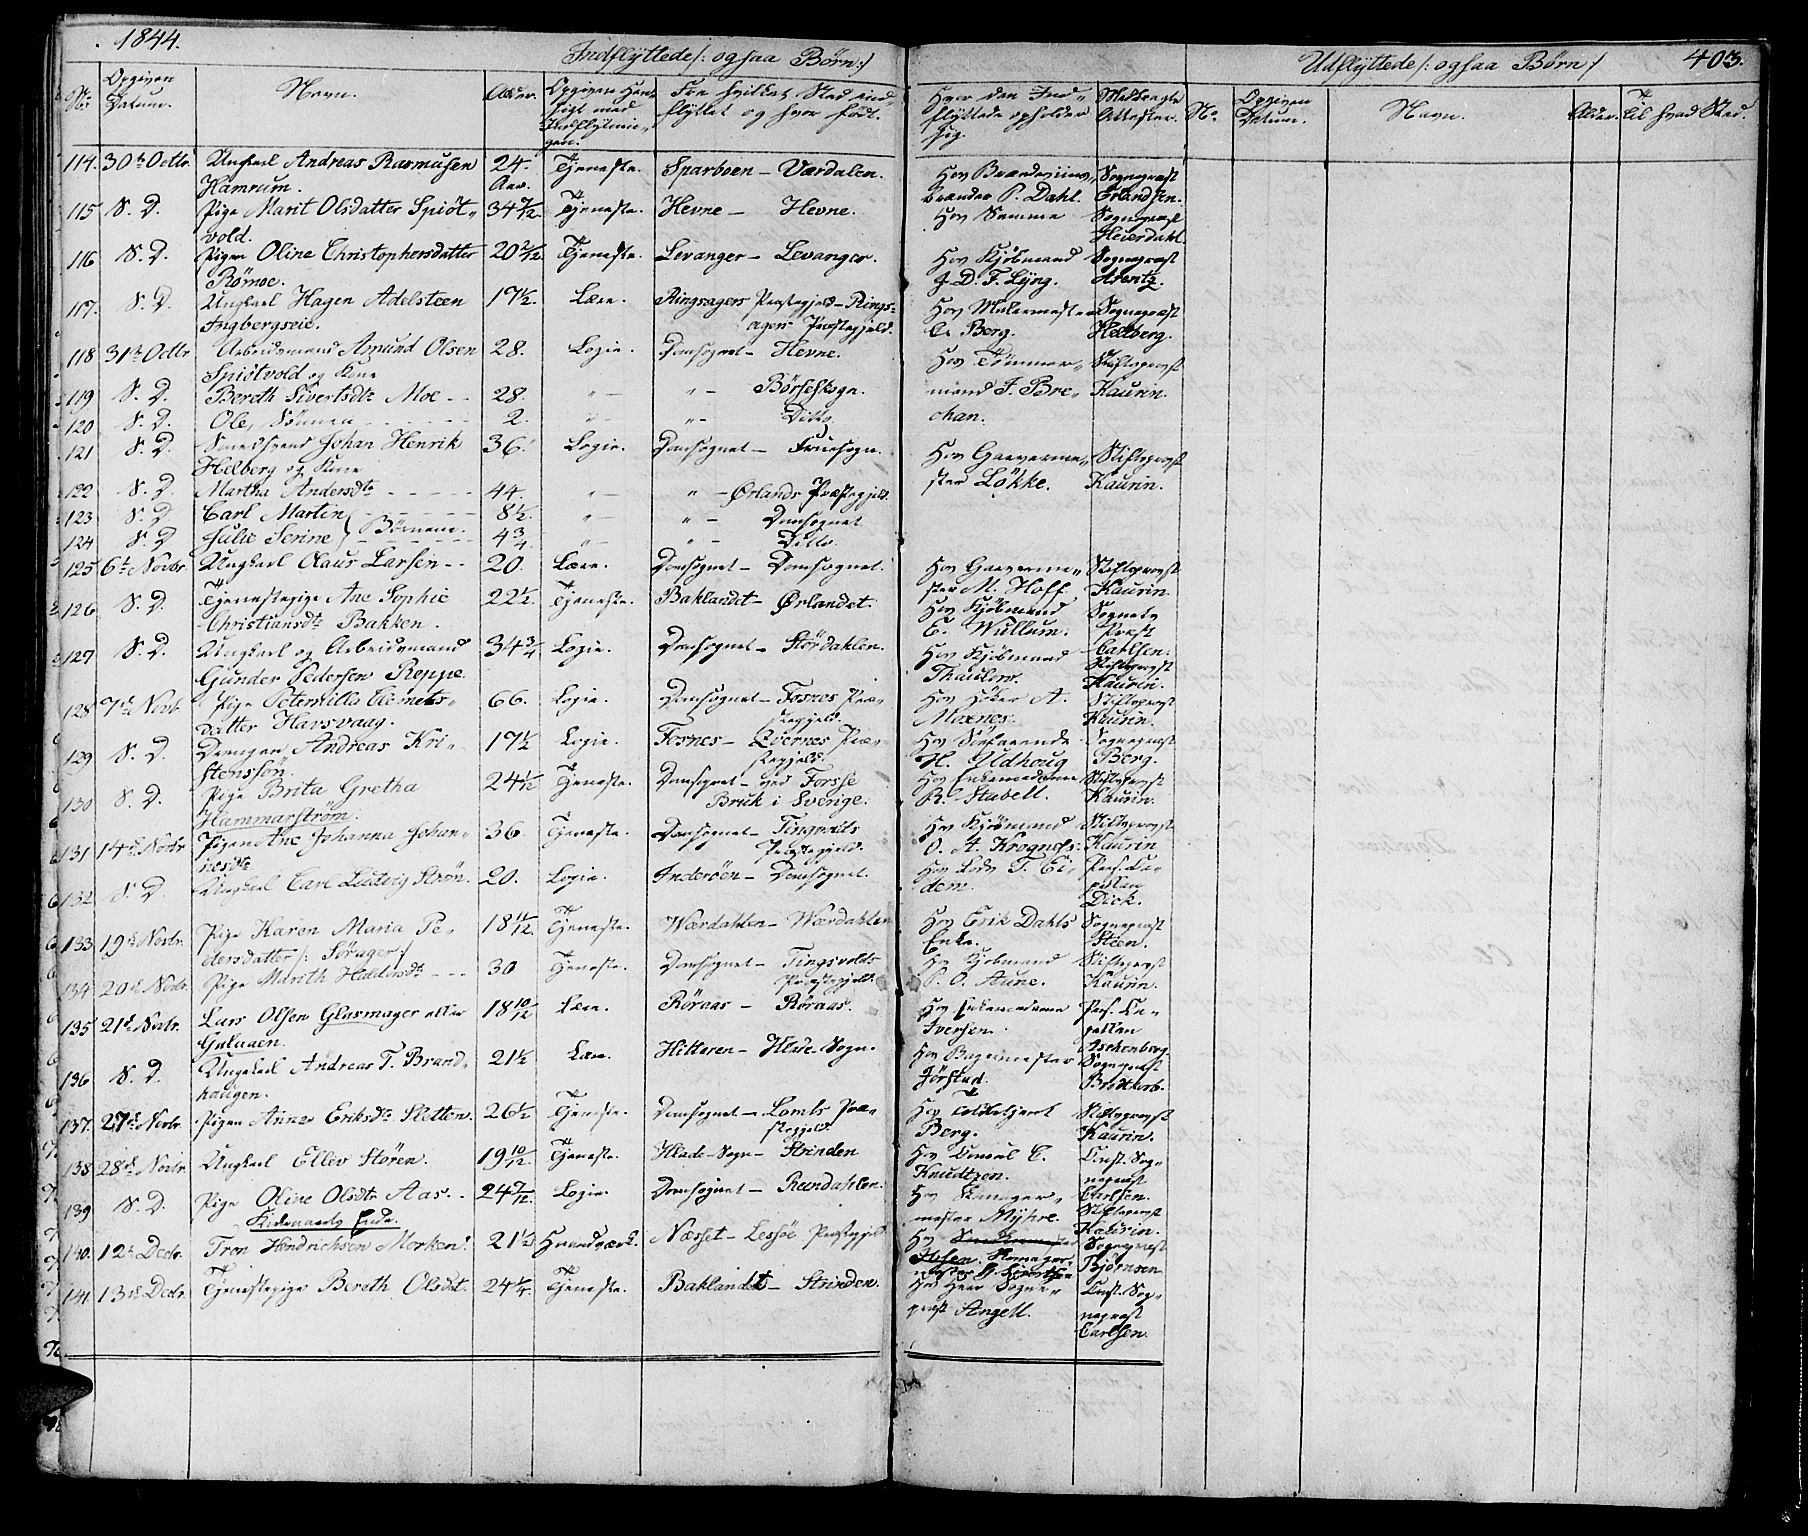 1844.
Indflyttede /: ogsaa Børn :/
Udflyttede /: ogsaa Børn :/
403.
No.
Opgiven Datum.
Navn.
Alder.
Opgiven Hensigt med Indflytningen.
Fra hvilket Sted indflyttet og hvor født.
Hvor den Indflyttede opholder sig.
Medbragte Attester.
No.
Opgiven Datum.
Navn.
Alder.
Til hvad Sted.
114. 30te Octbr. Ungkarl Andreas Rasmusen Hamrum. 24. Aar. Tjeneste. Sparboen – Værdalen. Hos Brændeviinsbrænder P. Dahl. Sognepræst Erlandsen.
115 S. D. Pige Marit Olsdatter Spiøtvold. 34 7/12. Tjeneste. Hevne – Hevne. Hos Samme Sognepræst Heierdahl.
116 S. D. Pigen Oline Christophersdatter Römoe. 20 2/12. Tjeneste. Levanger – Levanger. Hos Kjøbmand J. D. F. Lyng. Sognepræst
117. S. D. Ungkarl Hagen Adelsteen Ingbergseie. 17 1/2. Lære. Ringsagers Præstegjeld – Ringsagers Præstegjeld. Hos Malermester C. Berg. Sognepræst Helberg.
118 31te Octbr Arbeidsmand Amund Olsen Spiötvold og Kone 28. Logie. Domsognet – Hevne. Hos Tømmermand J. Brechan. Stiftsprovst Kaurin.
119 S. D. Bereth Sivertsdtr Moe - - 28 " – " – Børseskogn.
120 S. D. Ole, Sønnen - - - 2. " – " – Ditto
121 S. D. Smedsvend Johan Henrik Helberg og Kone 36. Logie. Domsognet – Fruesogn. Hos Garvermester Løkke. Stiftsprovst Kaurin.
122 S. D. Martha Andersdtr - - - 44. " – " – Ørlands Præstegjeld.
123 S. D. Carl Martin } Børnene. 8 1/2. " – " – Domsognet
124 S. D. Julie Serine } 4 3/4. " – " – Ditto.
125 6te Novbr. Ungkarl Olaus Larsen - - 20. Lære. Domsognet – Domsognet. Hos Garvermester M. Hoff. Stiftsprovst Kaurin.
126 S. D. Tjenestepige Ane Sophie Christiansdtr Bakken. 22 1/2. Tjeneste. Baklandet – Ørlandet. Hos Kjøbmand E. Wullum. Sognepræst Carlsen.
127 S. D. Ungkarl og Arbeidsmand Gunder Pedersen Reppe. 34 3/4 Logie. Domsognet – Stördahlen. Hos Kjøbmand Thaulow. Stiftsprovst Kaurin.
128 7de Novb. Pige Peternilla Clemetsdatter Havsvaag. 66. Logie. Domsognet – Fosnes Præstegjeld. Hos Høker A. Moxnes. Stiftsprovst Kaurin.
129 S. D. Drengen Andreas Kristenssön 17 1/2 Logie. Fosnes – Præstegjeld. Hos Søefarende H. Uldhoug Sognepræst Berg.
130 S. D. Pige Brita Gretha Hammarström. 24 1/2 Tjeneste. Domsognet – ved Forsse Bruk i Sverige. Hos Enkemadame R. Stabell. Stiftsprovst Kaurin.
131 14de Novbr Pigen Ane Johanna Johannesdtr 36 Tjeneste. Domsognet – Tingvolds Præstegjeld. Hos Kjøbmand O. A. Krognes. Stiftsprovst Kaurin
132 S. D. Ungkarl Carl Ludvig Strøm. 20. Logie. Inderöen – Domsognet. Hos Lods T. Eidem. Pers. Capellan Dick.
133 19de Novbr. Pige Karen Maria Pedersdatter /: Sörager :/ 18 11/12. Tjeneste. Wærdahlen – Wærdahlen Hos Erik Dahls Enke. Sognepræst Steen.
134 20de Novbr. Pige Marith Hildersdtr - - - 30 Tjeneste. Domsognet – Tingvolds Præstegjeld. Hos Kjøbmand P. O. Aune. Stiftsprovst Kaurin.
135 21de Novbr. Lars Olsen Glasmager eller Galaaen. 18 10/12 Lære. Röraas – Röraas. Hos Enkemadame Iversen. Pers. Capellan Aschenberg.
136 S. D. Ungkarl Andreas T. Brandhaugen. 21 1/2 Lære. Hitteren – Hlade Sogn. Hos Bagermester Jörstad. Sognepræst
137. 27de Novbr. Pigen Anne Eriksdtr Sletten. 26 1/2 Tjeneste. Domsognet – Lomls Præstegjeld. Hos Toldbetjent Berg. Stiftsprovst Kaurin.
138 28de Novbr. Ungkarl Ellev Støren. 19 10/12 Tjeneste. Hlade-Sogn – Strinden Hos Consul C. Knudtzon. Const. Sognepræst Carlsen.
139 S. D. Pige Oline Olsdtr Aas. - 24 7/12 Logie. Domsognet – Rendahlen. Hos Skomagermester Myhre. Stiftsprovst Kaurin.
140. 12te Decbr. Tron Hendrichsen Morken. 21 1/2 Haandværk. Næsset – Lessöe Præstegjeld Hos Skomagermester Sognepræst Björnsen
141. 13de Decbr. Tjenestepige Bereth Olsdtr. 24 1/4. Tjeneste. Baklandet – Strinden. Hos Herr Sognepræst Angell. Const. Sognepræst Carlsen.